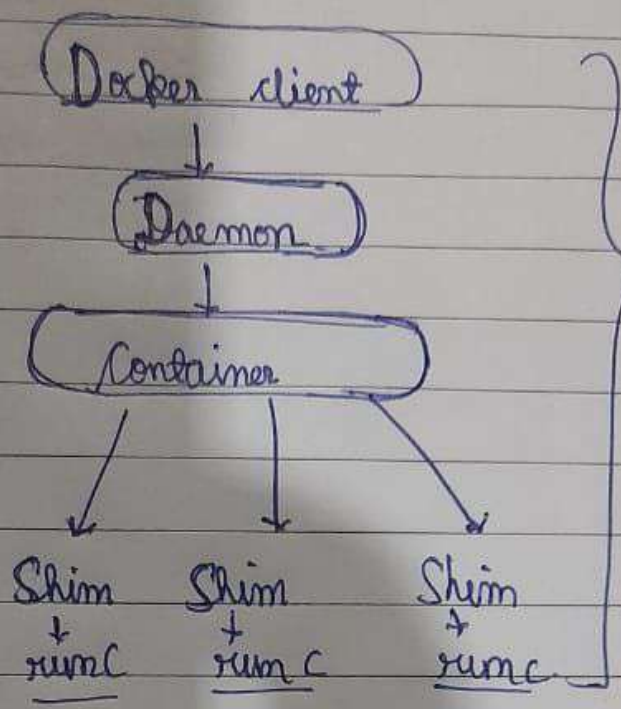 Docker client
Daemon
Container
Shim Shim Shim
+ + +
runC run C runc